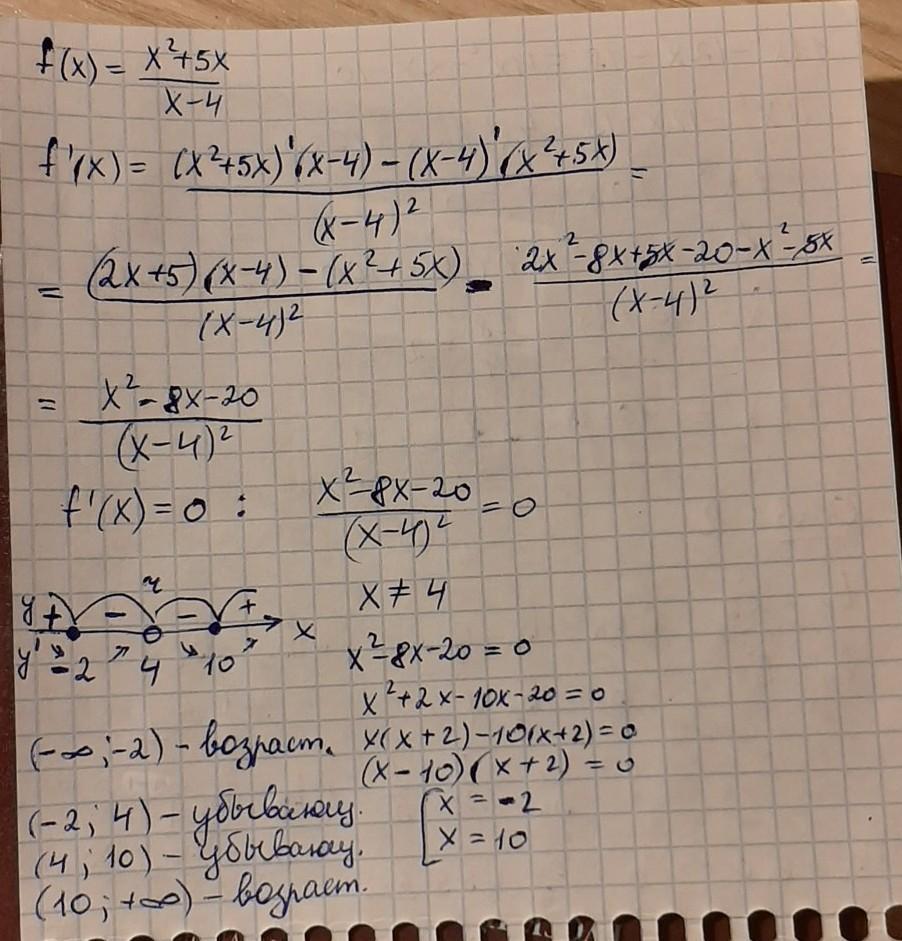 f(x) = (x²+5x)/(x-4)
f'(x) = ((x²+5x)'(x-4) - (x-4)'(x²+5x))/(x-4)² =
= ((2x+5)(x-4) - (x²+5x))/(x-4)² = (2x²-8x+5x-20-x²-5x)/(x-4)² =
= (x²-8x-20)/(x-4)²
f'(x) = 0 : (x²-8x-20)/(x-4)² = 0
x ≠ 4
y + - - + x
y' ↘ -2 ↗ 4 ↘ 10 ↗
x²-8x-20 = 0
x²+2x-10x-20 = 0
x(x+2)-10(x+2) = 0
(x-10)(x+2) = 0
[ x = -2
x = 10
(-∞; -2) - возраст.
(-2; 4) - убывающ.
(4; 10) - убывающ.
(10; +∞) - возраст.